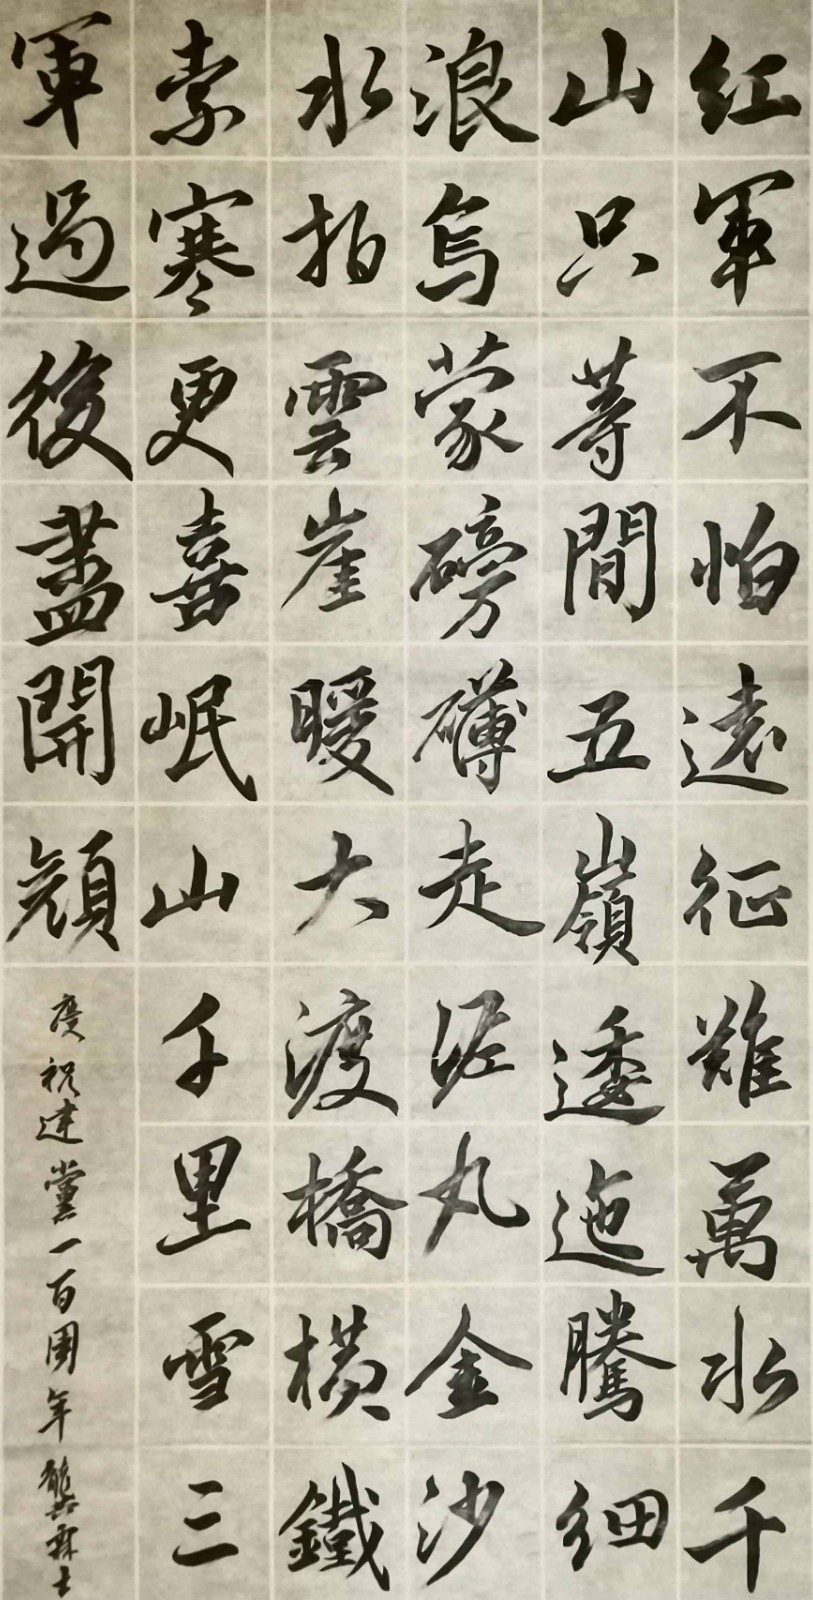 紅軍不怕遠征難萬水千
山只等間五嶺逶迤騰細
浪烏蒙磅礴走泥丸金沙
水拍雲崖暖大渡橋橫鐵
索寒更喜岷山千里雪三
軍過後盡開顏
慶祝建黨一百周年 龔霖士